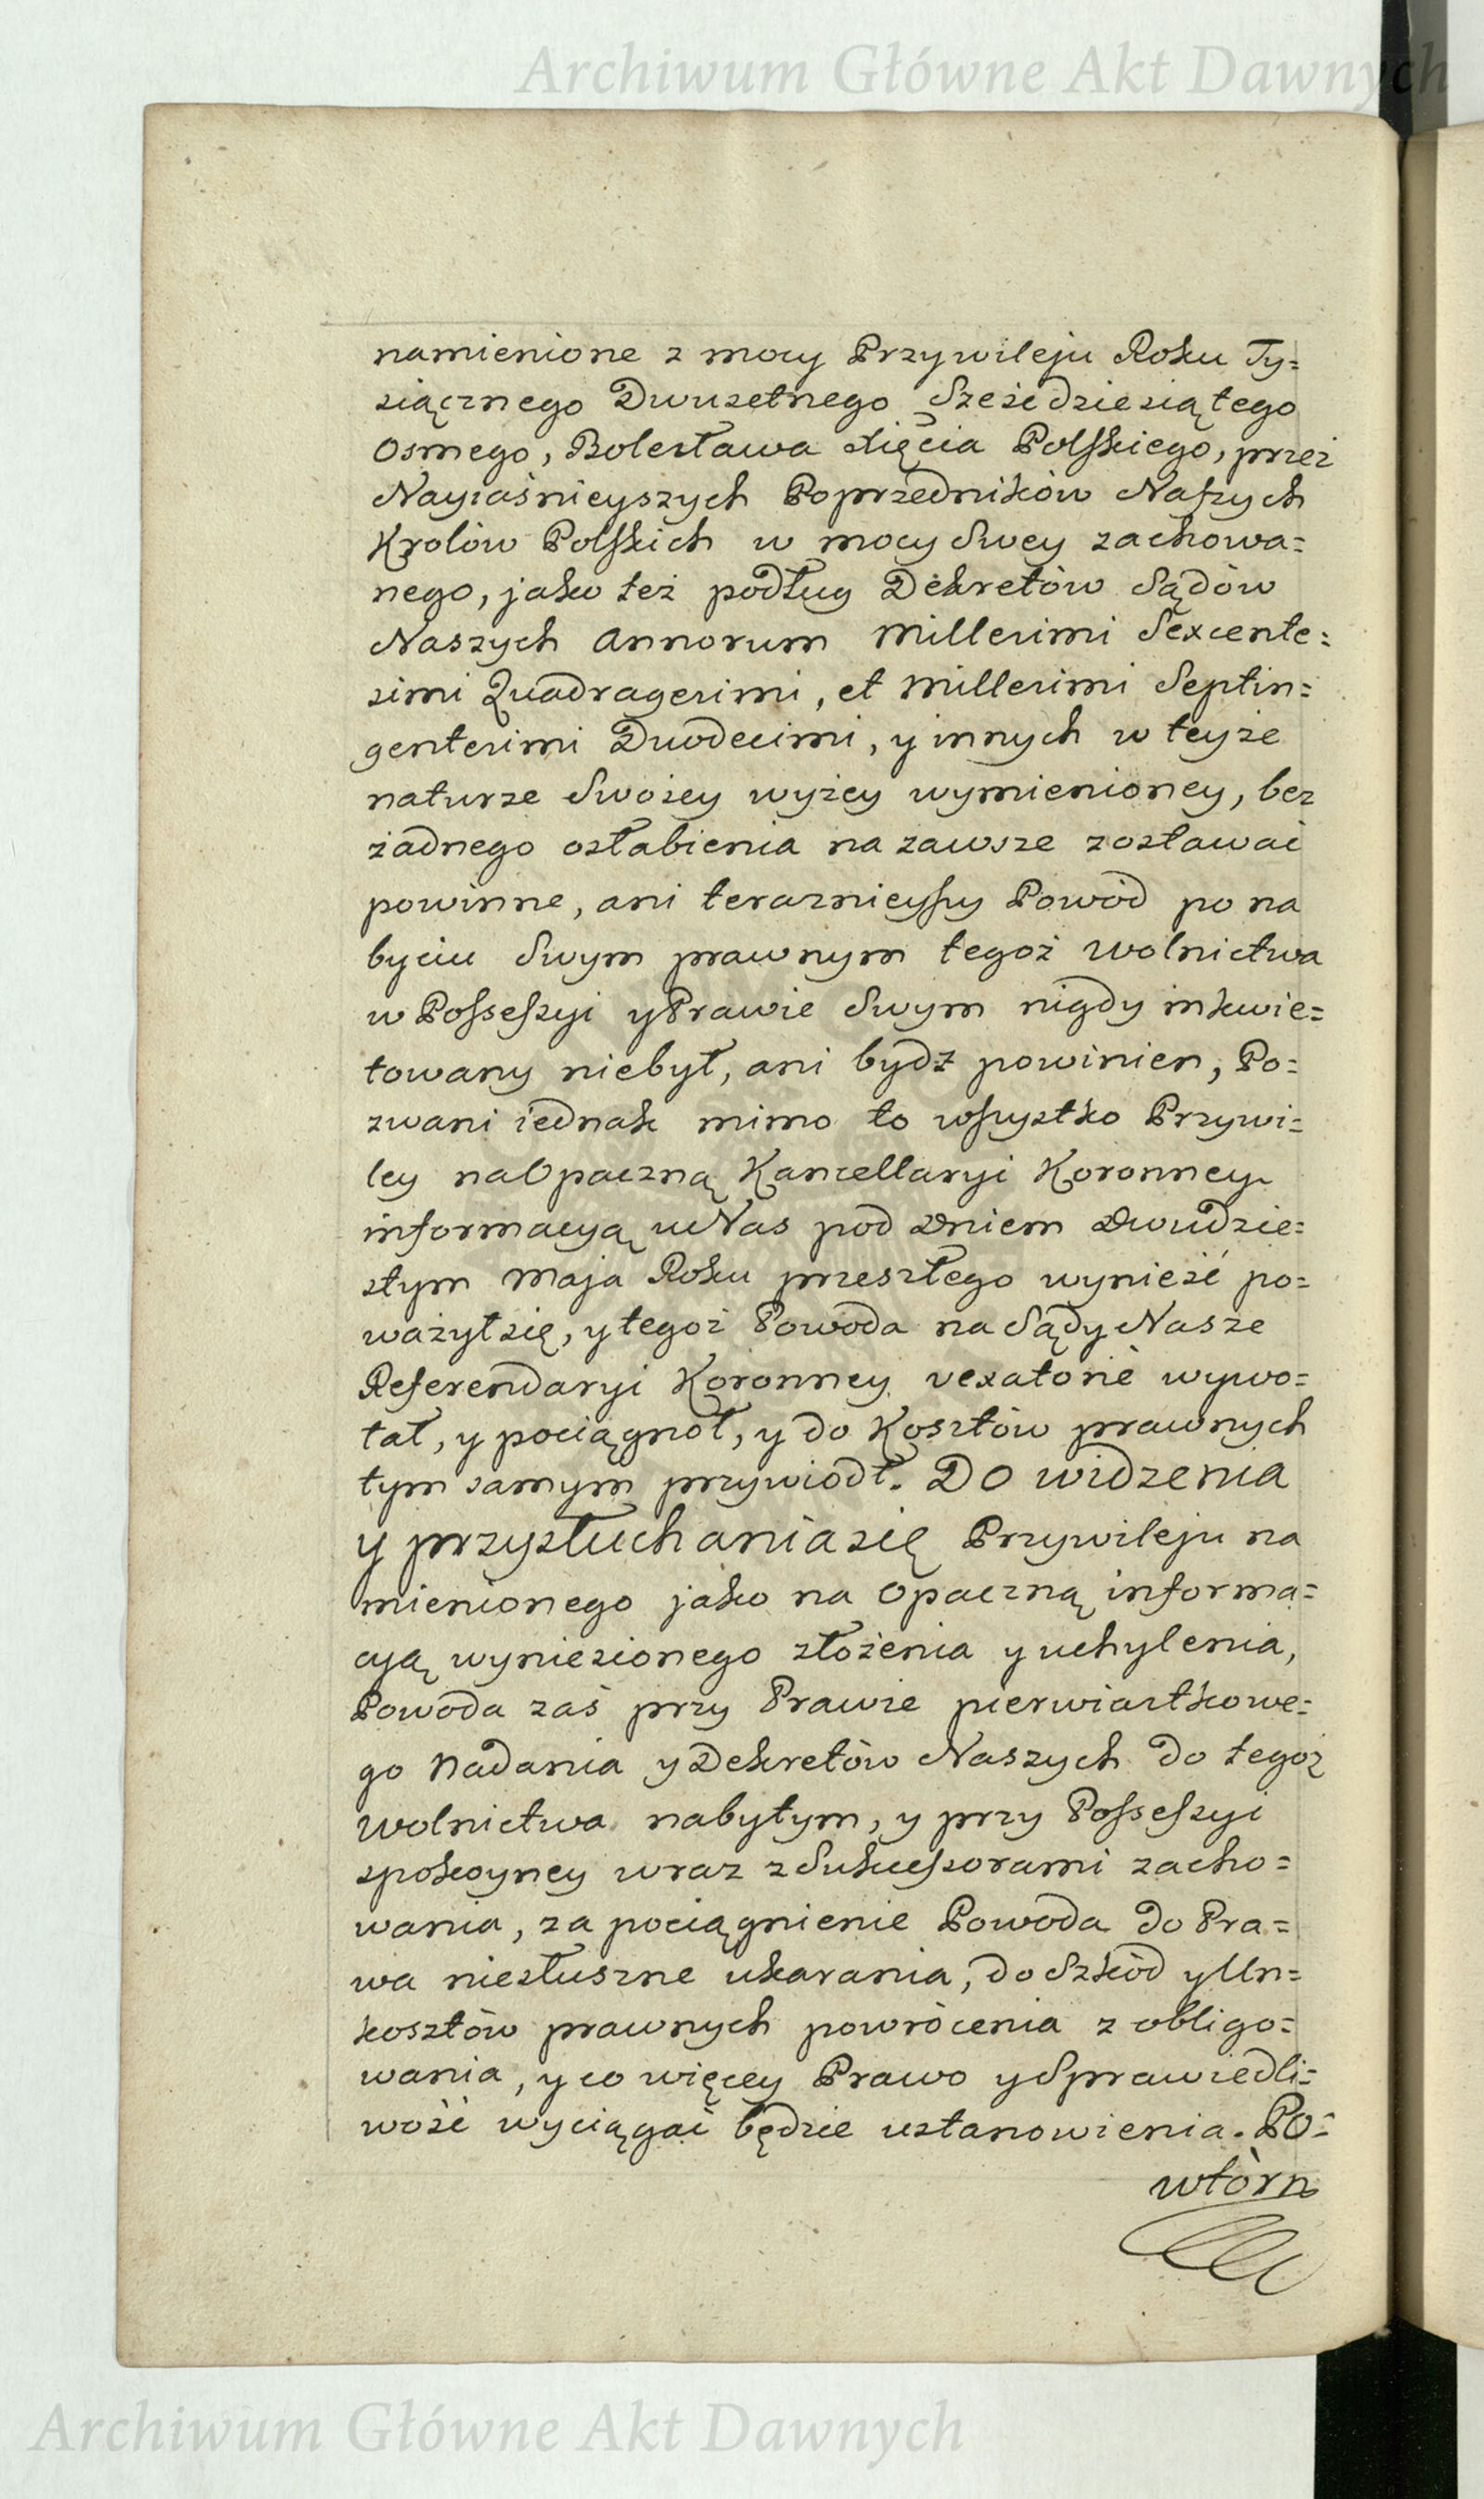 Archiwum Główne Akt Dawnych
namienione z mocy Przywileju Roku Ty=
siącznego Dwusetnego Sześćdziesiątego
Osmego, Bolesława Xięcia Polskiego, przez
Nayiaśnieyszych Poprzedników Naszych
Krolów Polskich w mocy Swey zachowa=
nego, jako też podług Dekretów Sądów
Naszych Annorum Millesimi Sexcente=
simi Quadragesimi, et Millesimi Septin=
gentesimi Duodecimi, y innych w teyże
naturze Swoiey wyżey wymienioney, bez
żadnego osłabienia na zawsze zostawać
powinne, ani teraznieyszy Powód po na
byciu Swym prawnym tegoż Wolnictwa
w Possessyi y Prawie Swym nigdy inkwie=
towany niebył, ani bydz powinien, Po=
zwani iednak mimo to wszystko Przywi=
ley na Opaczną Kancellaryi Koronney
informacyą u Nas pod Dniem Dwudzie=
stym Maja Roku przeszłego wynieść po=
ważył się, y tegoż Powoda na Sądy Nasze
Referendaryi Koronney vexatorie wywo=
łał, y pociągnoł, y do Kosztów prawnych
tym samym przywiodł. Do widzenia
y przysłuchania się Przywileju na
mienionego jako na Opaczną informa=
cyją wyniesionego złożenia y uchylenia,
Powoda zaś przy Prawie pierwiastkowe=
go Nadania y Dekretów Naszych do tegoż
Wolnictwa nabytym, y przy Possessyi
spokoyney wraz z Sukcessorami zacho=
wania, za pociągnienie Powoda do Pra=
wa niesłuszne ukarania, do Szkód y Un=
kosztów prawnych powrócenia z obligo=
wania, y co więcey Prawo y Sprawiedli=
wość wyciągać będzie ustanowienia. Po=
wtórn
Archiwum Główne Akt Dawnych